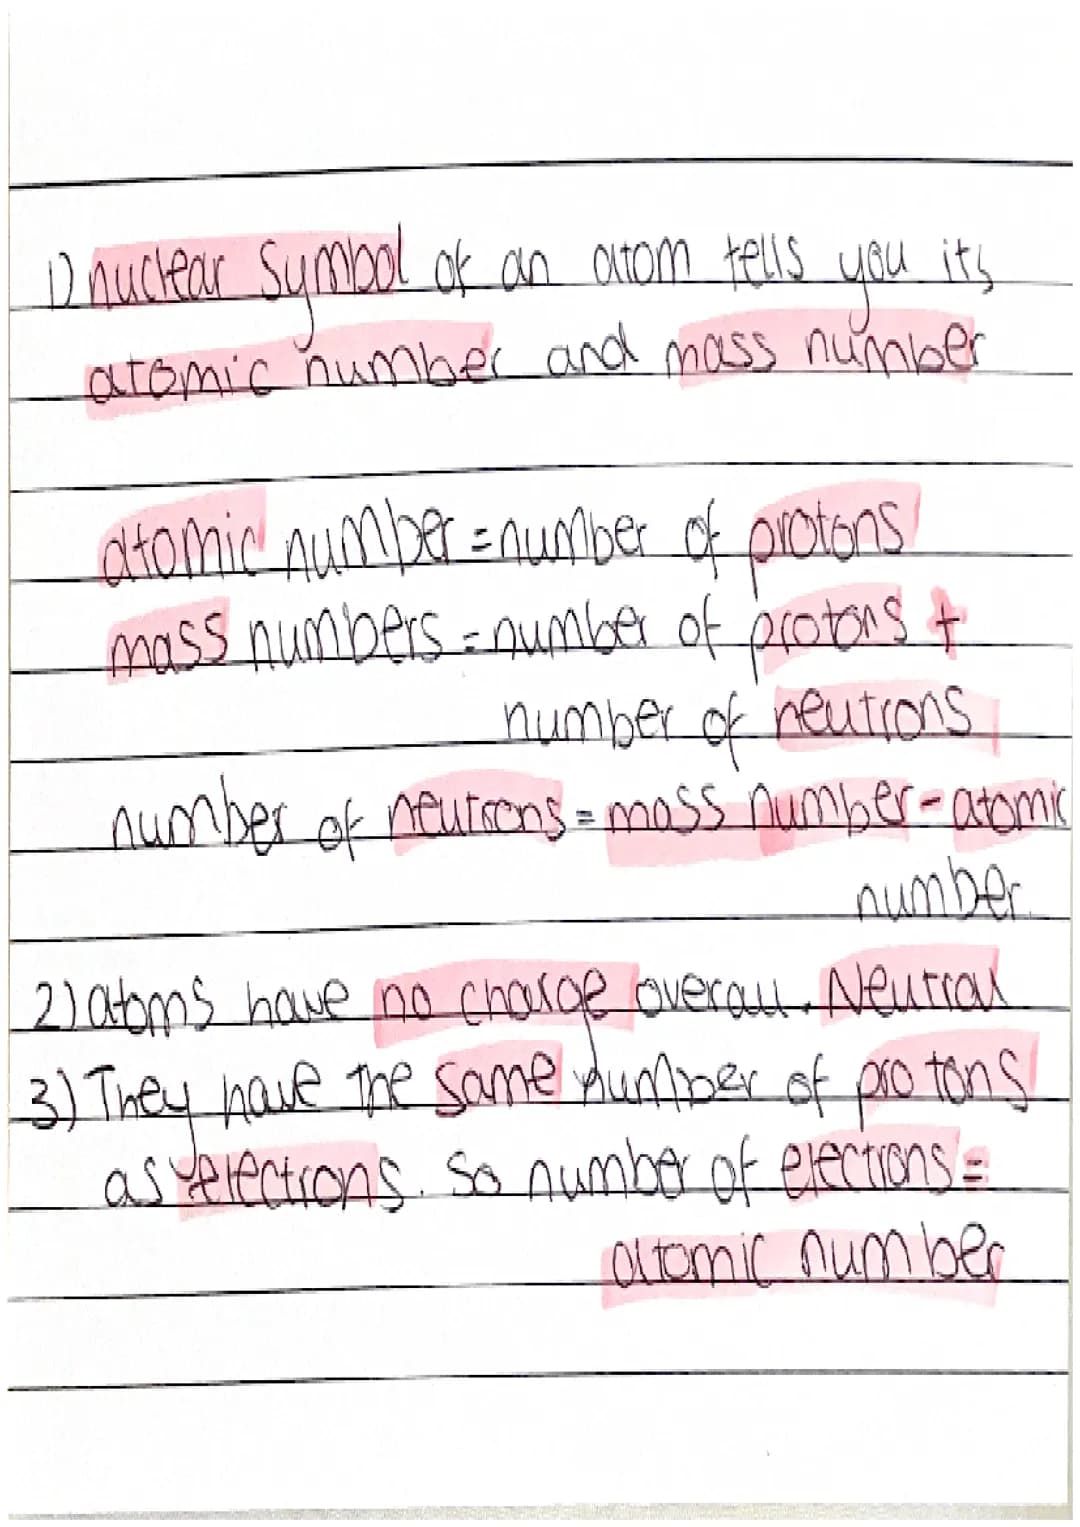 1) nuclear symbol of an atom tells you its
atomic number and mass number
atomic number = number of protons
mass numbers = number of protons +
number of neutrons
number of neutrons = mass number - atomic
number.
2) atoms have no charge overall. Neutral
3) They have the same number of protons
as electrons. So number of electrons =
atomic number